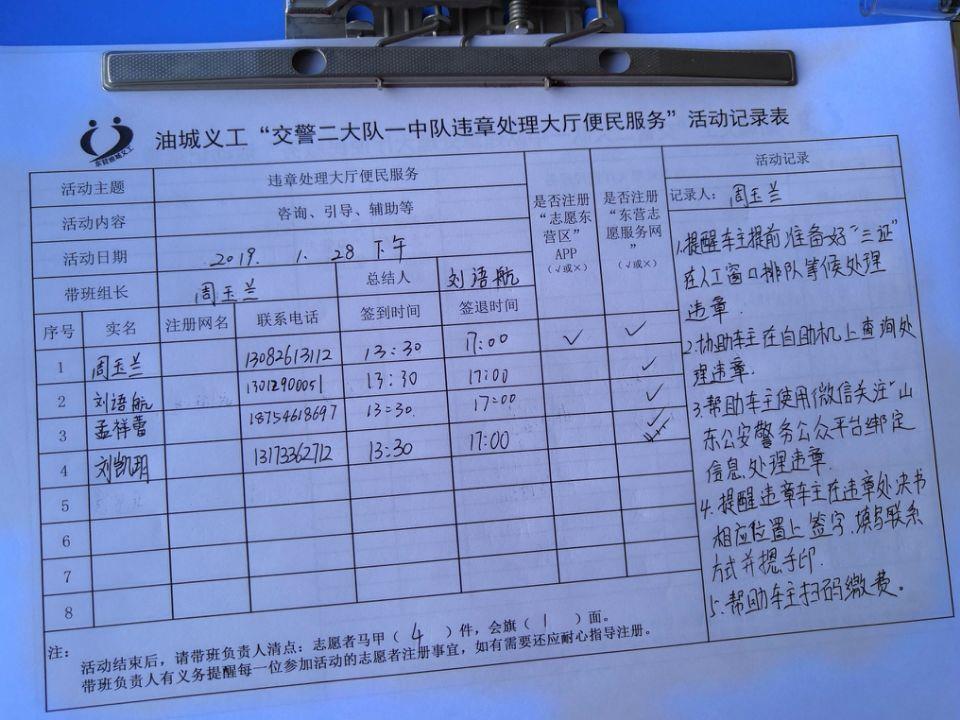 东营油城义工
油城义工“交警二大队一中队违章处理大厅便民服务”活动记录表
活动主题 违章处理大厅便民服务
活动内容 咨询、引导、辅助等
活动日期 2019. 1. 28 下午
带班组长 周玉兰 总结人 刘语航
是否注册
“志愿东
营区”
APP
(√或×)
是否注册
“东营志
愿服务网
”
(√或×)
序号 实名 注册网名 联系电话 签到时间 签退时间
1 周玉兰 13082613112 13:30 17:00 ✓ ✓
2 刘语航 13012900051 13:30 17:00 ✓
3 孟祥蕾 18754618697 13:30. 17:00 ✓
4 刘凯玥 13173362712 13:30 17:00 ✓
5
6
7
8
活动记录
记录人: 周玉兰
1.提醒车主提前准备好“三证”
在人工窗口排队等候处理
违章.
2.协助车主在自助机上查询处
理违章.
3.帮助车主使用微信关注“山
东公安警务公众平台绑定
信息.处理违章.
4.提醒违章车主在违章处决书
相应位置上签字.填写联系
方式并摁手印.
5.帮助车主扫码缴费。
注:
活动结束后,请带班负责人清点:志愿者马甲( 4 )件,会旗( 1 )面。
带班负责人有义务提醒每一位参加活动的志愿者注册事宜,如有需要还应耐心指导注册。